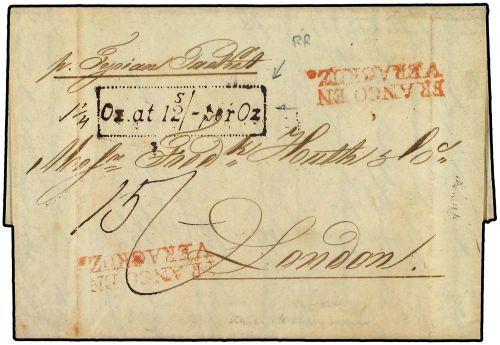 RR
p. Tyrian Packet
FRANCO EN
VERACRUZ.
1 1/4
Oz. at 12 5/- per Oz
Messrs Fredk Huth & Co.
15/
FRANCO EN
VERACRUZ.
London.